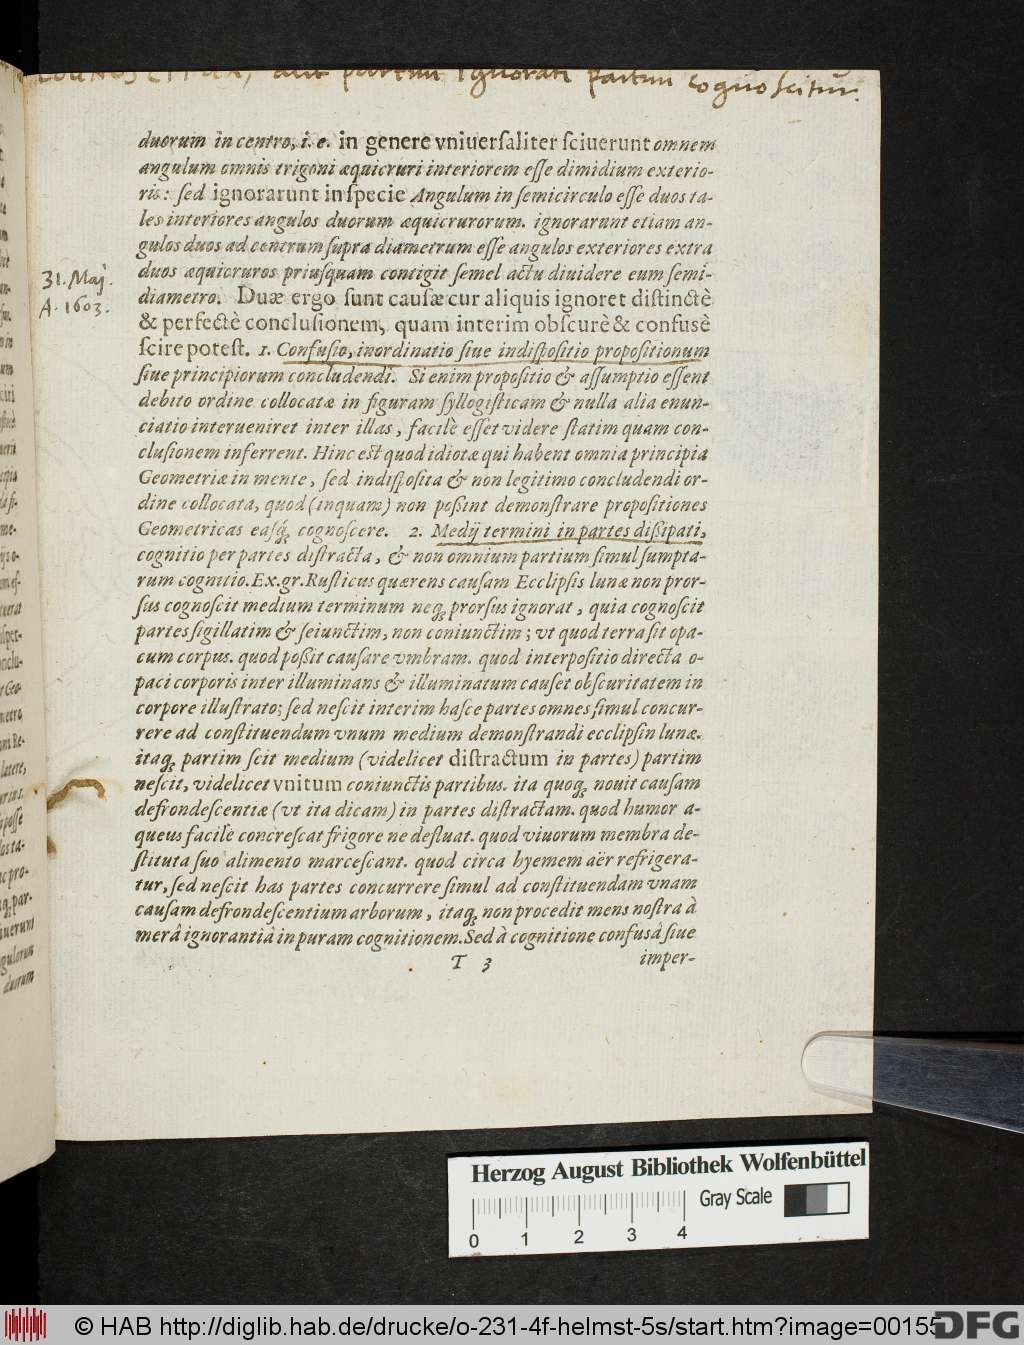 aut partim ignorati partim cognoscitur.
duorum in centro, i. e. in genere vniuerſaliter ſciuerunt omnem
angulum omnis trigoni æquicruri interiorem eſſe dimidium exterio-
ris: ſed ignorarunt in ſpecie Angulum in ſemicirculo eſſe duos ta-
les interiores angulos duorum æquicrurorum. ignorarunt etiam an-
gulos duos ad centrum ſupra diametrum eſſe angulos exteriores extra
duos æquicruros priuſquam contigit ſemel actu diuidere eum ſemi-
diametro. Duæ ergo ſunt cauſæ cur aliquis ignoret diſtinctè
& perfectè concluſionem, quam interim obſcurè & confusè
ſcire poteſt. 1. Confuſio, inordinatio ſiue indiſpoſitio propoſitionum
ſiue principiorum concludendi. Si enim propoſitio & aſſumptio eſſent
debito ordine collocatæ in figuram ſyllogiſticam & nulla alia enun-
ciatio interueniret inter illas, facilè eſſet videre ſtatim quam con-
cluſionem inferrent. Hinc eſt quod idiotæ qui habent omnia principia
Geometriæ in mente, ſed indiſpoſita & non legitimo concludendi or-
dine collocata, quod (inquam) non poßint demonſtrare propoſitiones
Geometricas easq́ꝫ cognoſcere. 2. Medij termini in partes dißipati,
cognitio per partes diſtracta, & non omnium partium ſimul ſumpta-
rum cognitio. Ex. gr. Ruſticus quærens cauſam Ecclipſis lunæ non pror-
ſus cognoſcit medium terminum neqꝫ prorſus ignorat, quia cognoſcit
partes ſigillatim & ſeiunctim, non coniunctim; vt quod terra ſit opa-
cum corpus. quod poßit cauſare vmbram. quod interpoſitio directa o-
paci corporis inter illuminans & illuminatum cauſet obſcuritatem in
corpore illuſtrato; ſed neſcit interim haſce partes omnes ſimul concur-
rere ad conſtituendum vnum medium demonſtrandi ecclipſin lunæ.
itaqꝫ partim ſcit medium (videlicet diſtractum in partes) partim
neſcit, videlicet vnitum coniunctis partibus. ita quoqꝫ nouit cauſam
defrondeſcentiæ (vt ita dicam) in partes diſtractam. quod humor a-
queus facilè concreſcat frigore ne defluat. quod viuorum membra de-
ſtituta ſuo alimento marceſcant. quod circa hyemem aër refrigera-
tur, ſed neſcit has partes concurrere ſimul ad conſtituendam vnam
cauſam defrondeſcentium arborum, itaqꝫ non procedit mens noſtra à
merâ ignorantiâ in puram cognitionem. Sed à cognitione confusâ ſiue
T 3 imper-
31. Maj.
A. 1603.
Herzog August Bibliothek Wolfenbüttel
Gray Scale
0 1 2 3 4
© HAB http://diglib.hab.de/drucke/o-231-4f-helmst-5s/start.htm?image=00155
DFG